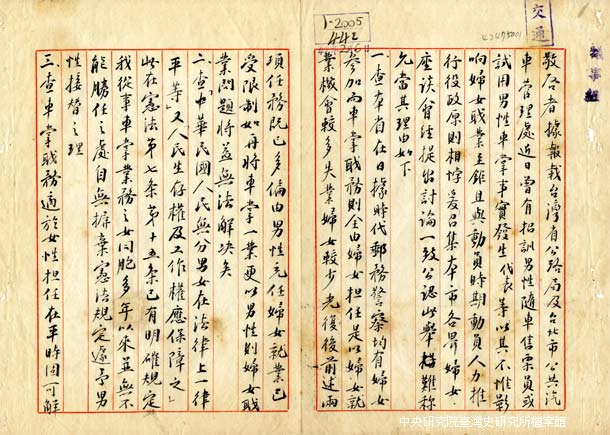 交通
1-2005
442
敬啓者據報載台灣省公路局及台北市公共汽
車管理處近日曾有招訓男性隨車售票員或
試用男性車掌事實發生代表等以其不惟影
响婦女職業至鉅且與動員時期動員人力推
行役政原則相悖爰召集本市各界婦女
座談會經提出討論一致公認此舉難称
允當其理由如下
一查本省在日據時代郵務警察均有婦女
參加而車掌職務則全由婦女担任是以婦女就
業機會較多失業婦女較少光復後前述兩
項任務既已多偏由男性充任婦女就業已
受限制如再將車掌一業更以男性則婦女職
業問題將益無法解決矣
二查中華民國人民無分男女在法律上一律
平等又人民生存權及工作權應保障之
此在憲法第七条第十五条已有明確規定
我從事車掌業務之女同胞多年以來並無不
能勝任之處自無摒棄憲法規定遽予男
性接替之理
三查車掌職務適於女性担任在平時固可解
中央研究院臺灣史研究所檔案館